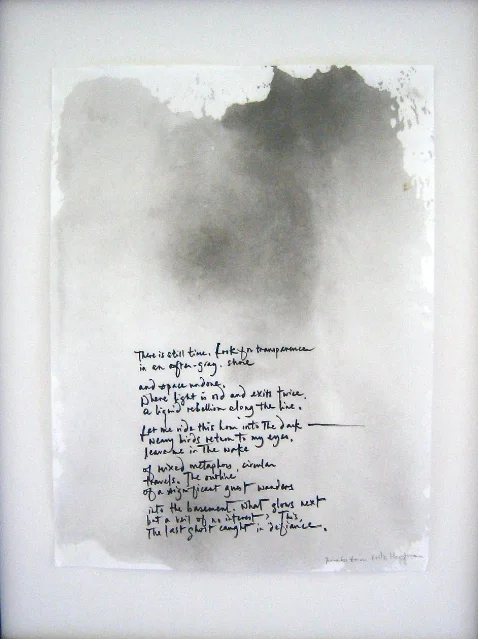 There is still time. Look for transparence
in an after-gray. shore
and space undone.
Where light is old and exits twice.
a liquid rebellion along the line.
Let me ride this horn into The dark
Weary birds return to my eyes.
leave me in The wake
of mixed metaphors, circular
travels. The outline
of a significant guest wanders
into the basement. What glows next
but a veil of no interest? This,
The last ghost caught in defiance.